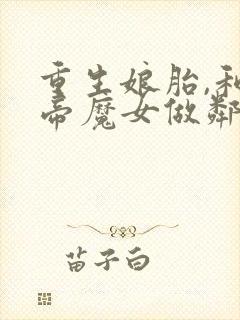 重生娘胎,和
帝魔女做鄰
苗子白